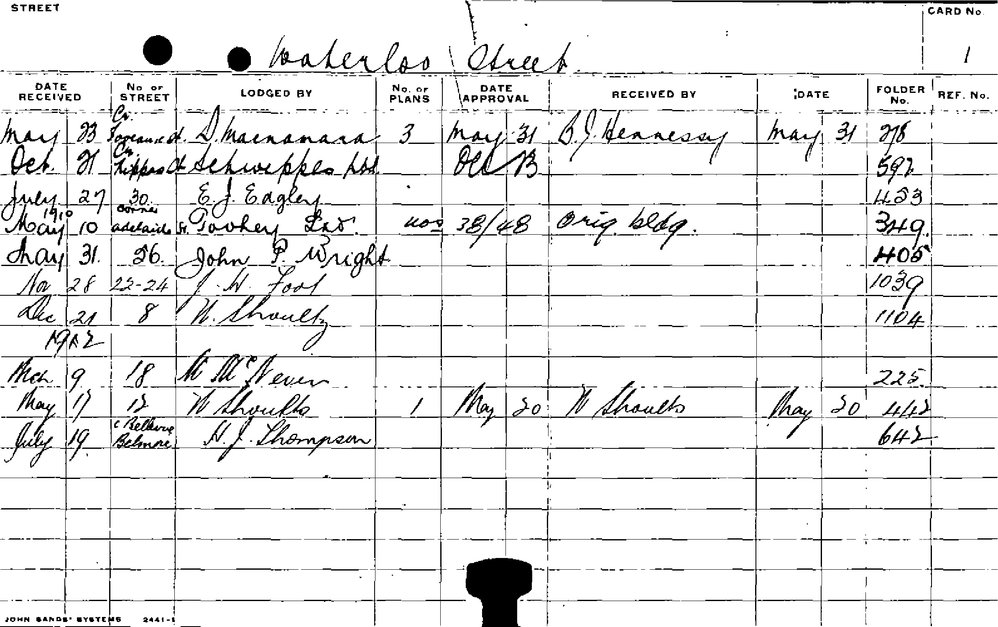 STREET
CARD No.
Waterloo Street
1
DATE RECEIVED No. OF STREET LODGED BY No. OF PLANS DATE APPROVAL RECEIVED BY DATE FOLDER No. REF. No.
Cr
May 23 St. D. Macnamara 3 May 31 B. J. Hennessy May 31 278
Oct. 21 Schweppes Ltd Oct 13 592
July 27 30 E. J. Eagley 453
1910 corner
May 10 adelaide St. Toohey Ltd. nos 38/48 orig bldg. 349.
May 31. 26. John P. Wright 405
Nov 28 22-24 J. W. Foot 1039
Dec 21 8 W. Shoultz 1104
1912
Mch 9 18 McNeven 225
May 17 12 W Shoults 1 May 20 W Shoults May 20 442
c Bellevue
July 19. Belmore H. J. Thompson 642
JOHN SANDS' SYSTEMS 2441-1